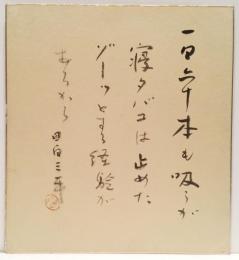 一日六十本も吸うが
寝タバコは止めた
ゾーッとする経験が
あるから